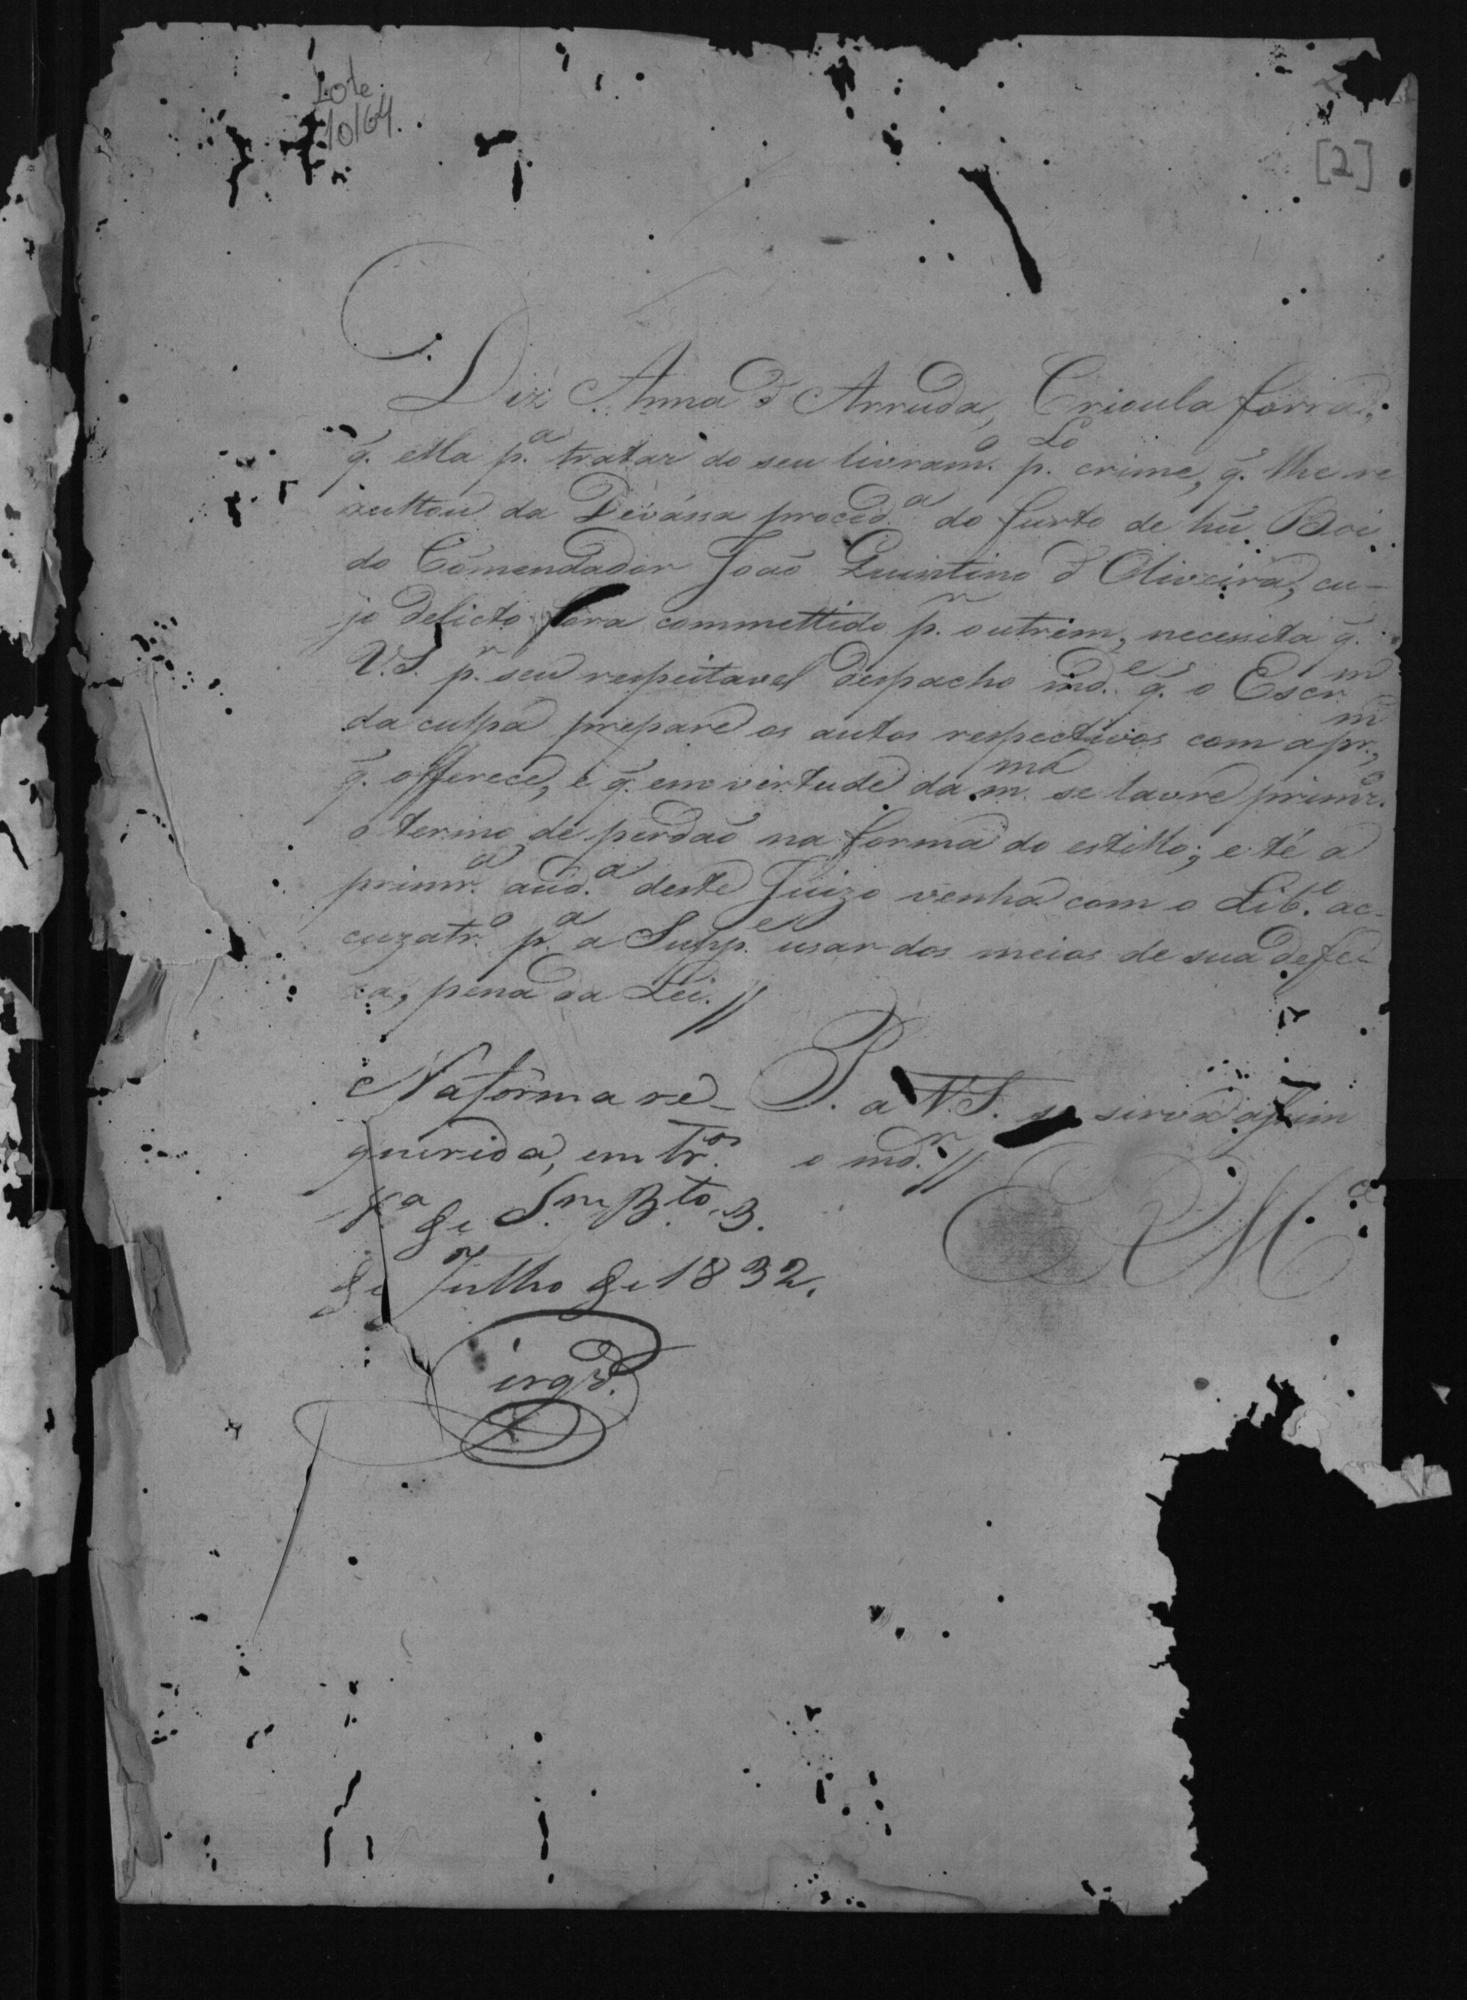 Lote
10164.
[2]
Diz Anna d' Arruda, Crioula forra,
q̃. ella p.ª tratar do seu livram.º p.lo crime, q̃. lhe re
zultou da Devássa proced.ª do furto de hũ Boi
do Cõmendador João Quintino d' Oliveira, cu-
jo delicto fora commettido p.r outrem, necessita q̃.
V.S. p.r seu respeitavel despacho md.e q̃. o Escr.m
da culpa prepare os autos respectivos com a pr.m,
q̃. offerece, e q̃. em virtude da m.ma se lavre primr.º
o termo de perdaõ na forma do estillo; e té a
primr.ª aud.ª deste Juizo venha com o Lib.º ac-
cuzatr.º p.ª a Supp.e usar dos meios de sua defe-
za, pena da Lei.//
P. a V.S. se sirva assim
o md.r //
E R M.ce
Na fórma re-
querida, em tr.os
V.ª de S.m B.to 3.
de Julho de 1832.